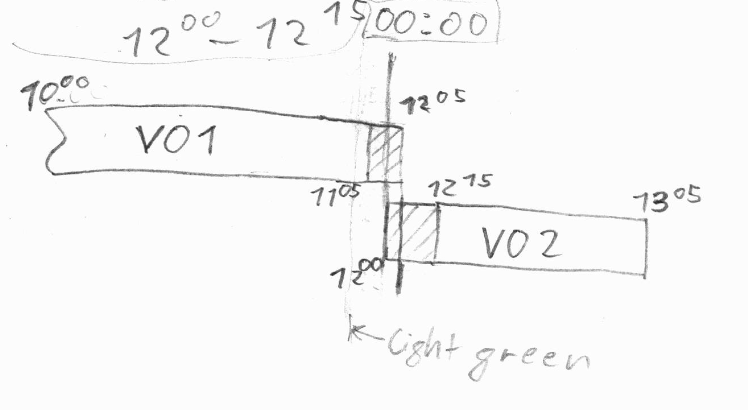 12⁰⁰ – 12¹⁵ 00:00
10⁰⁰
12⁰⁵
VO1
11⁰⁵ 12¹⁵ 13⁰⁵
VO2
12⁰⁰
light green